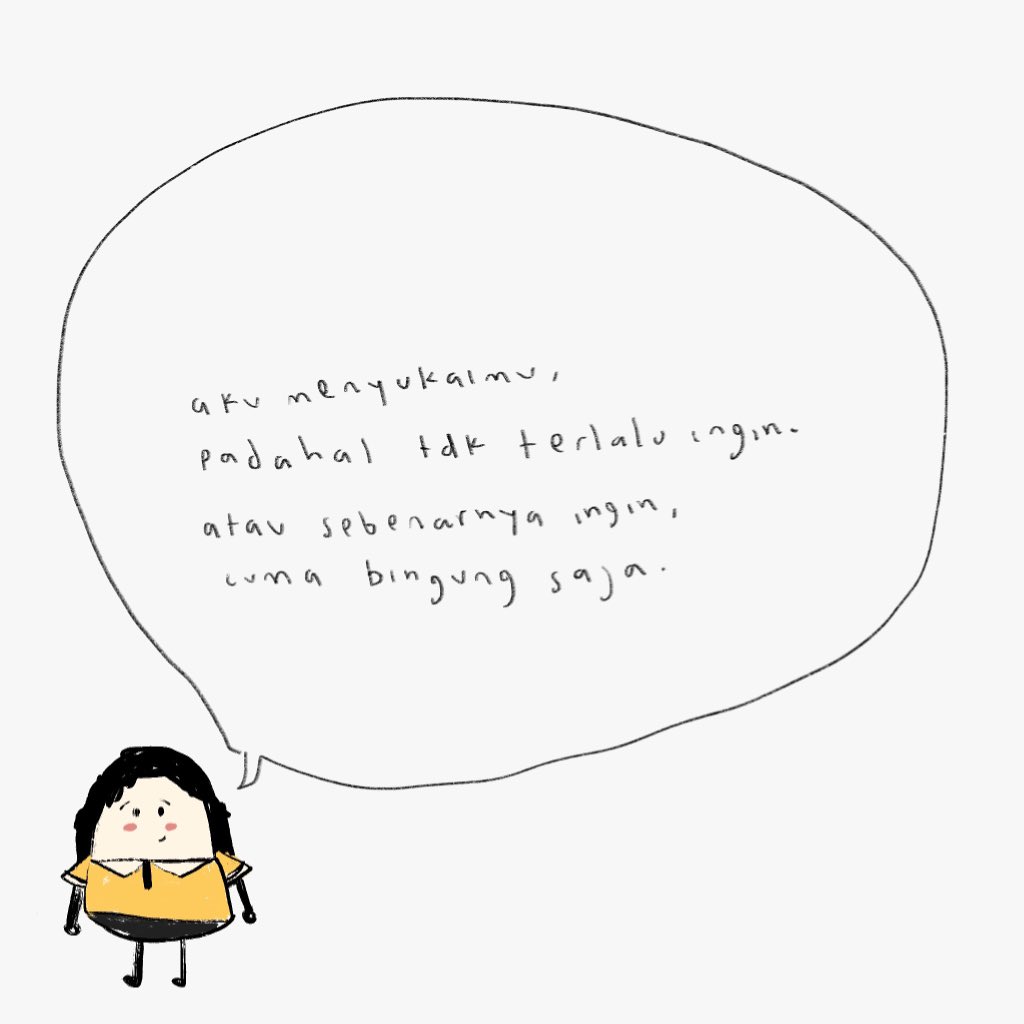 aku menyukaimu,
padahal tdk terlalu ingin.
atau sebenarnya ingin,
cuma bingung saja.